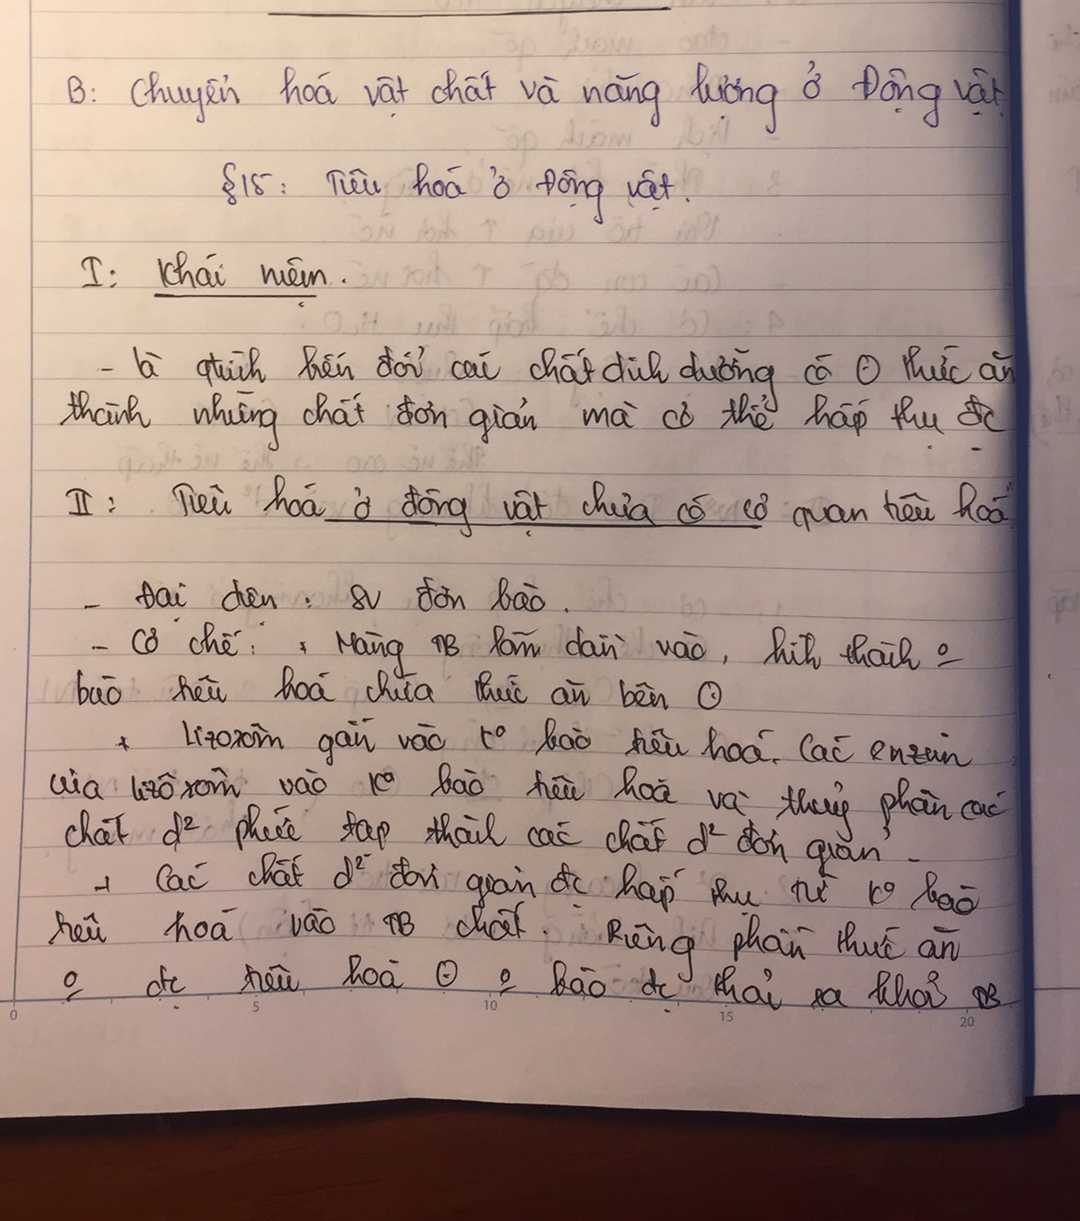 B: Chuyển hoá vật chất và năng lượng ở Động vật
§15: Tiêu hoá ở Động vật.
I: Khái niệm.
- là qtrình biến đổi các chất dinh dưỡng có ⊙ thức ăn
thành những chất đơn giản mà cơ thể hấp thụ đc
II: Tiêu hoá ở động vật chưa có cơ quan tiêu hoá
- Đại diện: SV đơn bào.
- Cơ chế: + Màng TB lõm dần vào, hình thành o
bào tiêu hoá chứa thức ăn bên ⊙
+ Lizoxôm gắn vào ko bào tiêu hoá. Các enzim
của lizôxôm vào ko bào tiêu hoá và thuỷ phân các
chất d² phức tạp thành các chất d² đơn giản.
+ Các chất d² đơn giản đc hấp thụ từ ko bào
tiêu hoá vào TB chất. Riêng phần thức ăn
o đc tiêu hoá ⊙ o bào đc thải ra khỏi TB
0 5 10 15 20